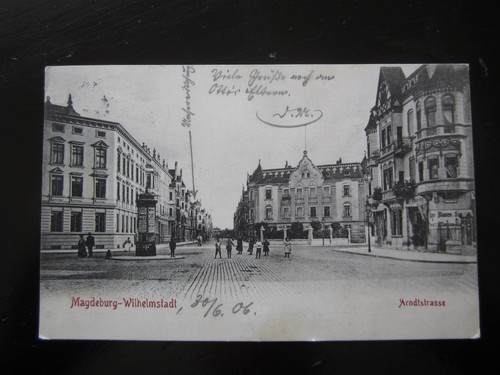 Viele Grüße auch an
Otto's Eltern.
Magdeburg-Wilhelmstadt,
30/6.06.
Arndtstrasse